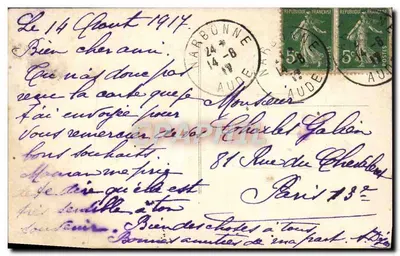 Le 14 Aout 1917.
Bien cher ami
Tu n'as donc pas
reçu la carte que je
t'ai envoyée pour
vous remercier de vos
bons souhaits.
Maman me prie
de te dire qu'elle est
très sensible à ton
souvenir. Bien des choses à tous,
Bonnes amitiés de ma part.
NARBONNE
24
14-8
17
AUDE
NARBONNE
AUDE
5c
5c
Monsieur
Charles
81 Rue du Chevaleret
Paris 13e